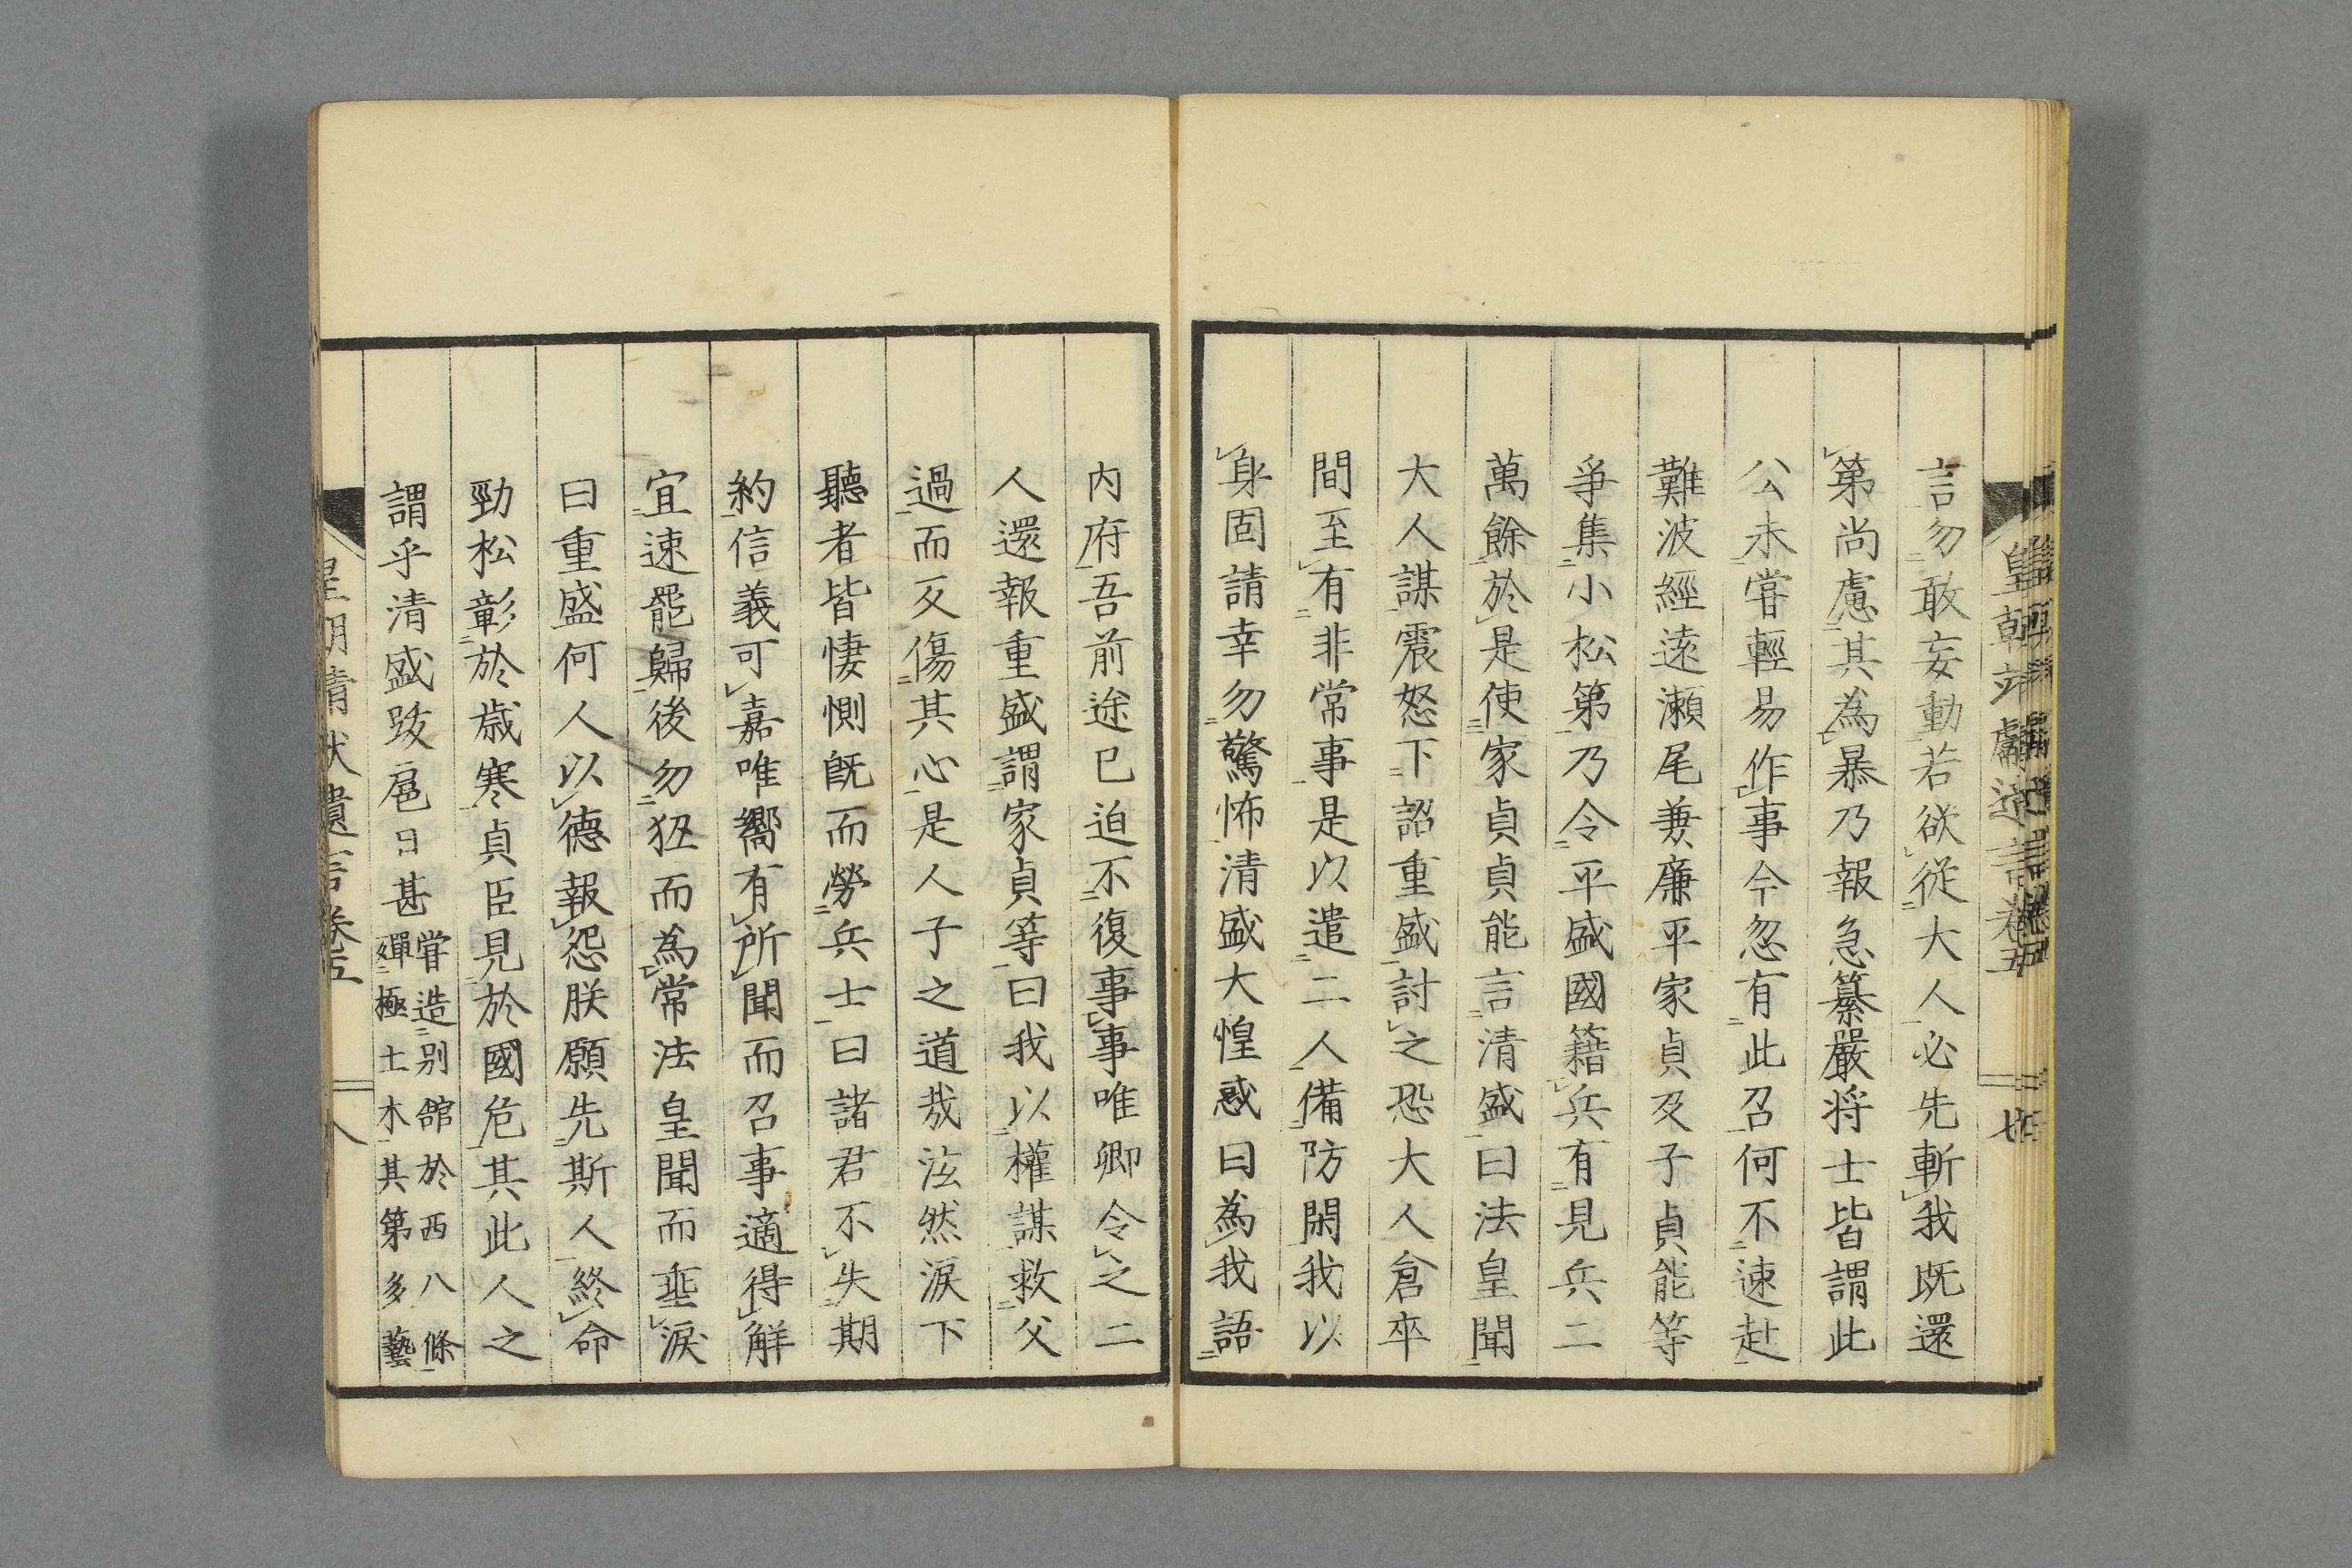 言勿敢妄動若欲從大人必先斬我既還
第尚慮其為暴乃報急纂嚴将士皆謂此
公未嘗輕易作事今忽有此召何不速赴
難波經遠瀬尾兼廉平家貞及子貞能等
爭集小松第乃令平盛國籍兵有見兵二
萬餘於是使家貞貞能言清盛曰法皇聞
大人謀震怒下詔重盛討之恐大人倉卒
間至有非常事是以遣二人備防閑我以
身固請幸勿驚怖清盛大惶惑曰為我語
内府吾前途已迫不復事事唯卿令之二
人還報重盛謂家貞等曰我以權謀救父
過而反傷其心是人子之道哉泫然淚下
聽者皆悽惻既而勞兵士曰諸君不失期
約信義可嘉唯嚮有所聞而召事適得解
宜速罷歸後勿狃而為常法皇聞而垂淚
曰重盛何人以德報怨朕願先斯人終命
勁松彰於歳寒貞臣見於國危其此人之
謂乎清盛跋扈日甚
嘗造别舘於西八條
殫極土木其第多藝